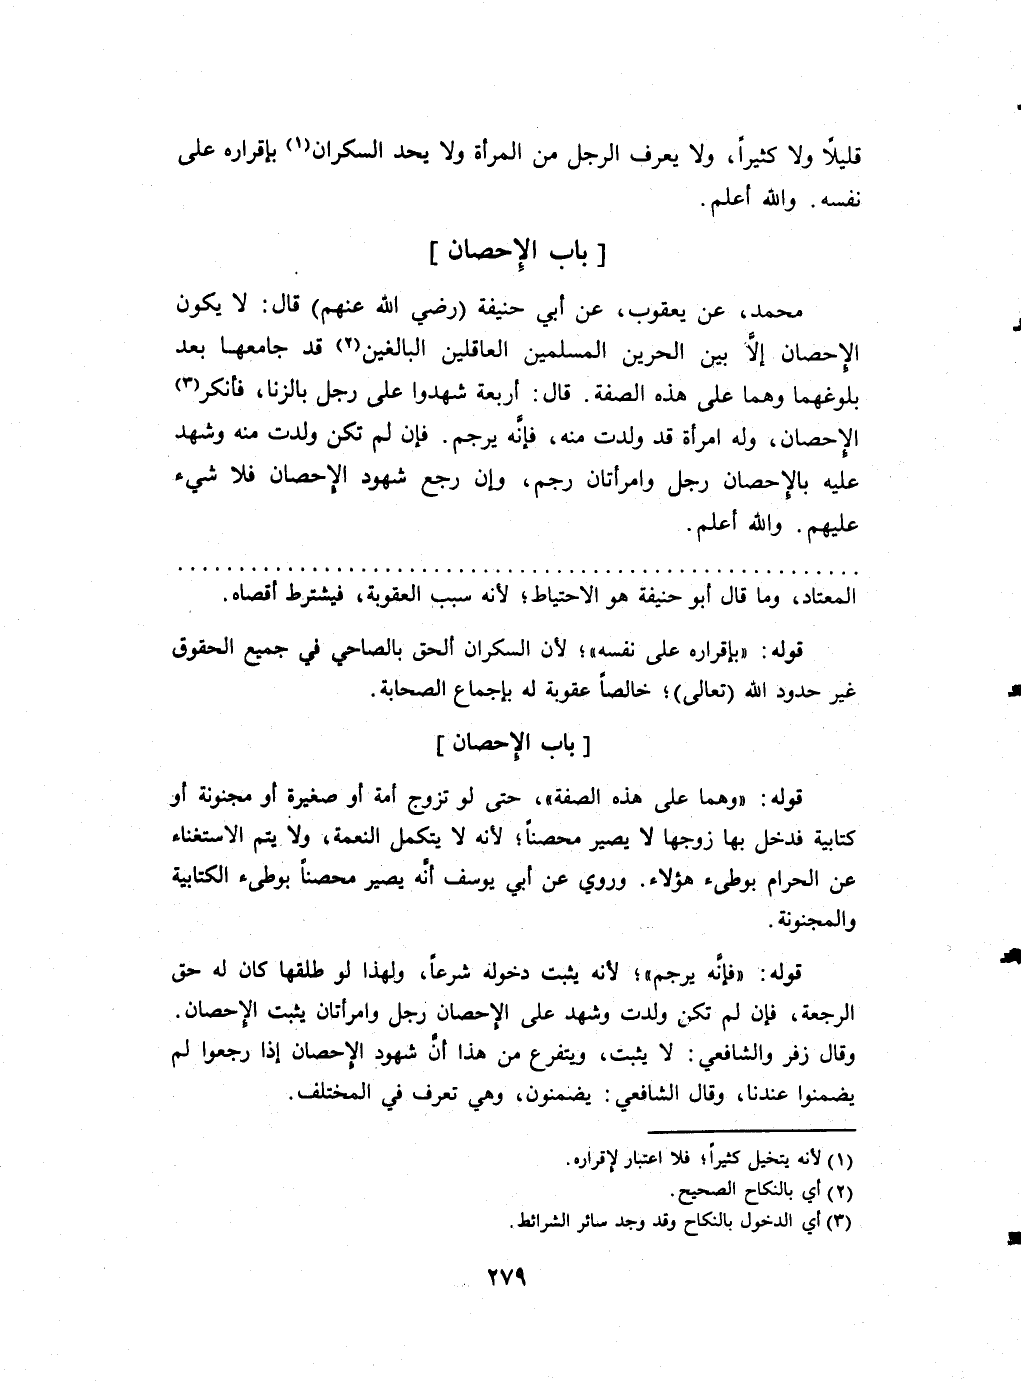 قليلاً ولا كثيراً، ولا يعرف الرجل من المرأة ولا يحد السكران(١) بإقراره على
نفسه. والله أعلم.
[ باب الإحصان ]
محمد، عن يعقوب، عن أبي حنيفة (رضي الله عنهم) قال: لا يكون
الإحصان إلاَّ بين الحرين المسلمين العاقلين البالغين(٢) قد جامعهـا بعد
بلوغهما وهما على هذه الصفة. قال: أربعة شهدوا على رجل بالزنا، فأنكر(٣)
الإحصان، وله امرأة قد ولدت منه، فإنَّه يرجم. فإن لم تكن ولدت منه وشهد
عليه بالإحصان رجل وامرأتان رجم، وإن رجع شهود الإحصان فلا شيء
عليهم. والله أعلم.
. . . . . . . . . . . . . . . . . . . . . . . . . . . . . . . . . . . . . . . . . . . . . . . . . . . . . .
المعتاد، وما قال أبو حنيفة هو الاحتياط؛ لأنه سبب العقوبة، فيشترط أقصاه.
قوله: «بإقراره على نفسه»؛ لأن السكران ألحق بالصاحي في جميع الحقوق
غير حدود الله (تعالى)؛ خالصاً عقوبة له بإجماع الصحابة.
[ باب الإحصان ]
قوله: «وهما على هذه الصفة»، حتى لو تزوج أمة أو صغيرة أو مجنونة أو
كتابية فدخل بها زوجها لا يصير محصناً؛ لأنه لا يتكمل النعمة، ولا يتم الاستغناء
عن الحرام بوطىء هؤلاء. وروي عن أبي يوسف أنَّه يصير محصناً بوطىء الكتابية
والمجنونة.
قوله: «فإنَّه يرجم»؛ لأنه يثبت دخوله شرعاً، ولهذا لو طلقها كان له حق
الرجعة، فإن لم تكن ولدت وشهد على الإحصان رجل وامرأتان يثبت الإحصان.
وقال زفر والشافعي: لا يثبت، ويتفرع من هذا أنَّ شهود الإحصان إذا رجعوا لم
يضمنوا عندنا، وقال الشافعي: يضمنون، وهي تعرف في المختلف.
(١) لأنه يتخيل كثيراً؛ فلا اعتبار لإقراره.
(٢) أي بالنكاح الصحيح.
(٣) أي الدخول بالنكاح وقد وجد سائر الشرائط.
٢٧٩